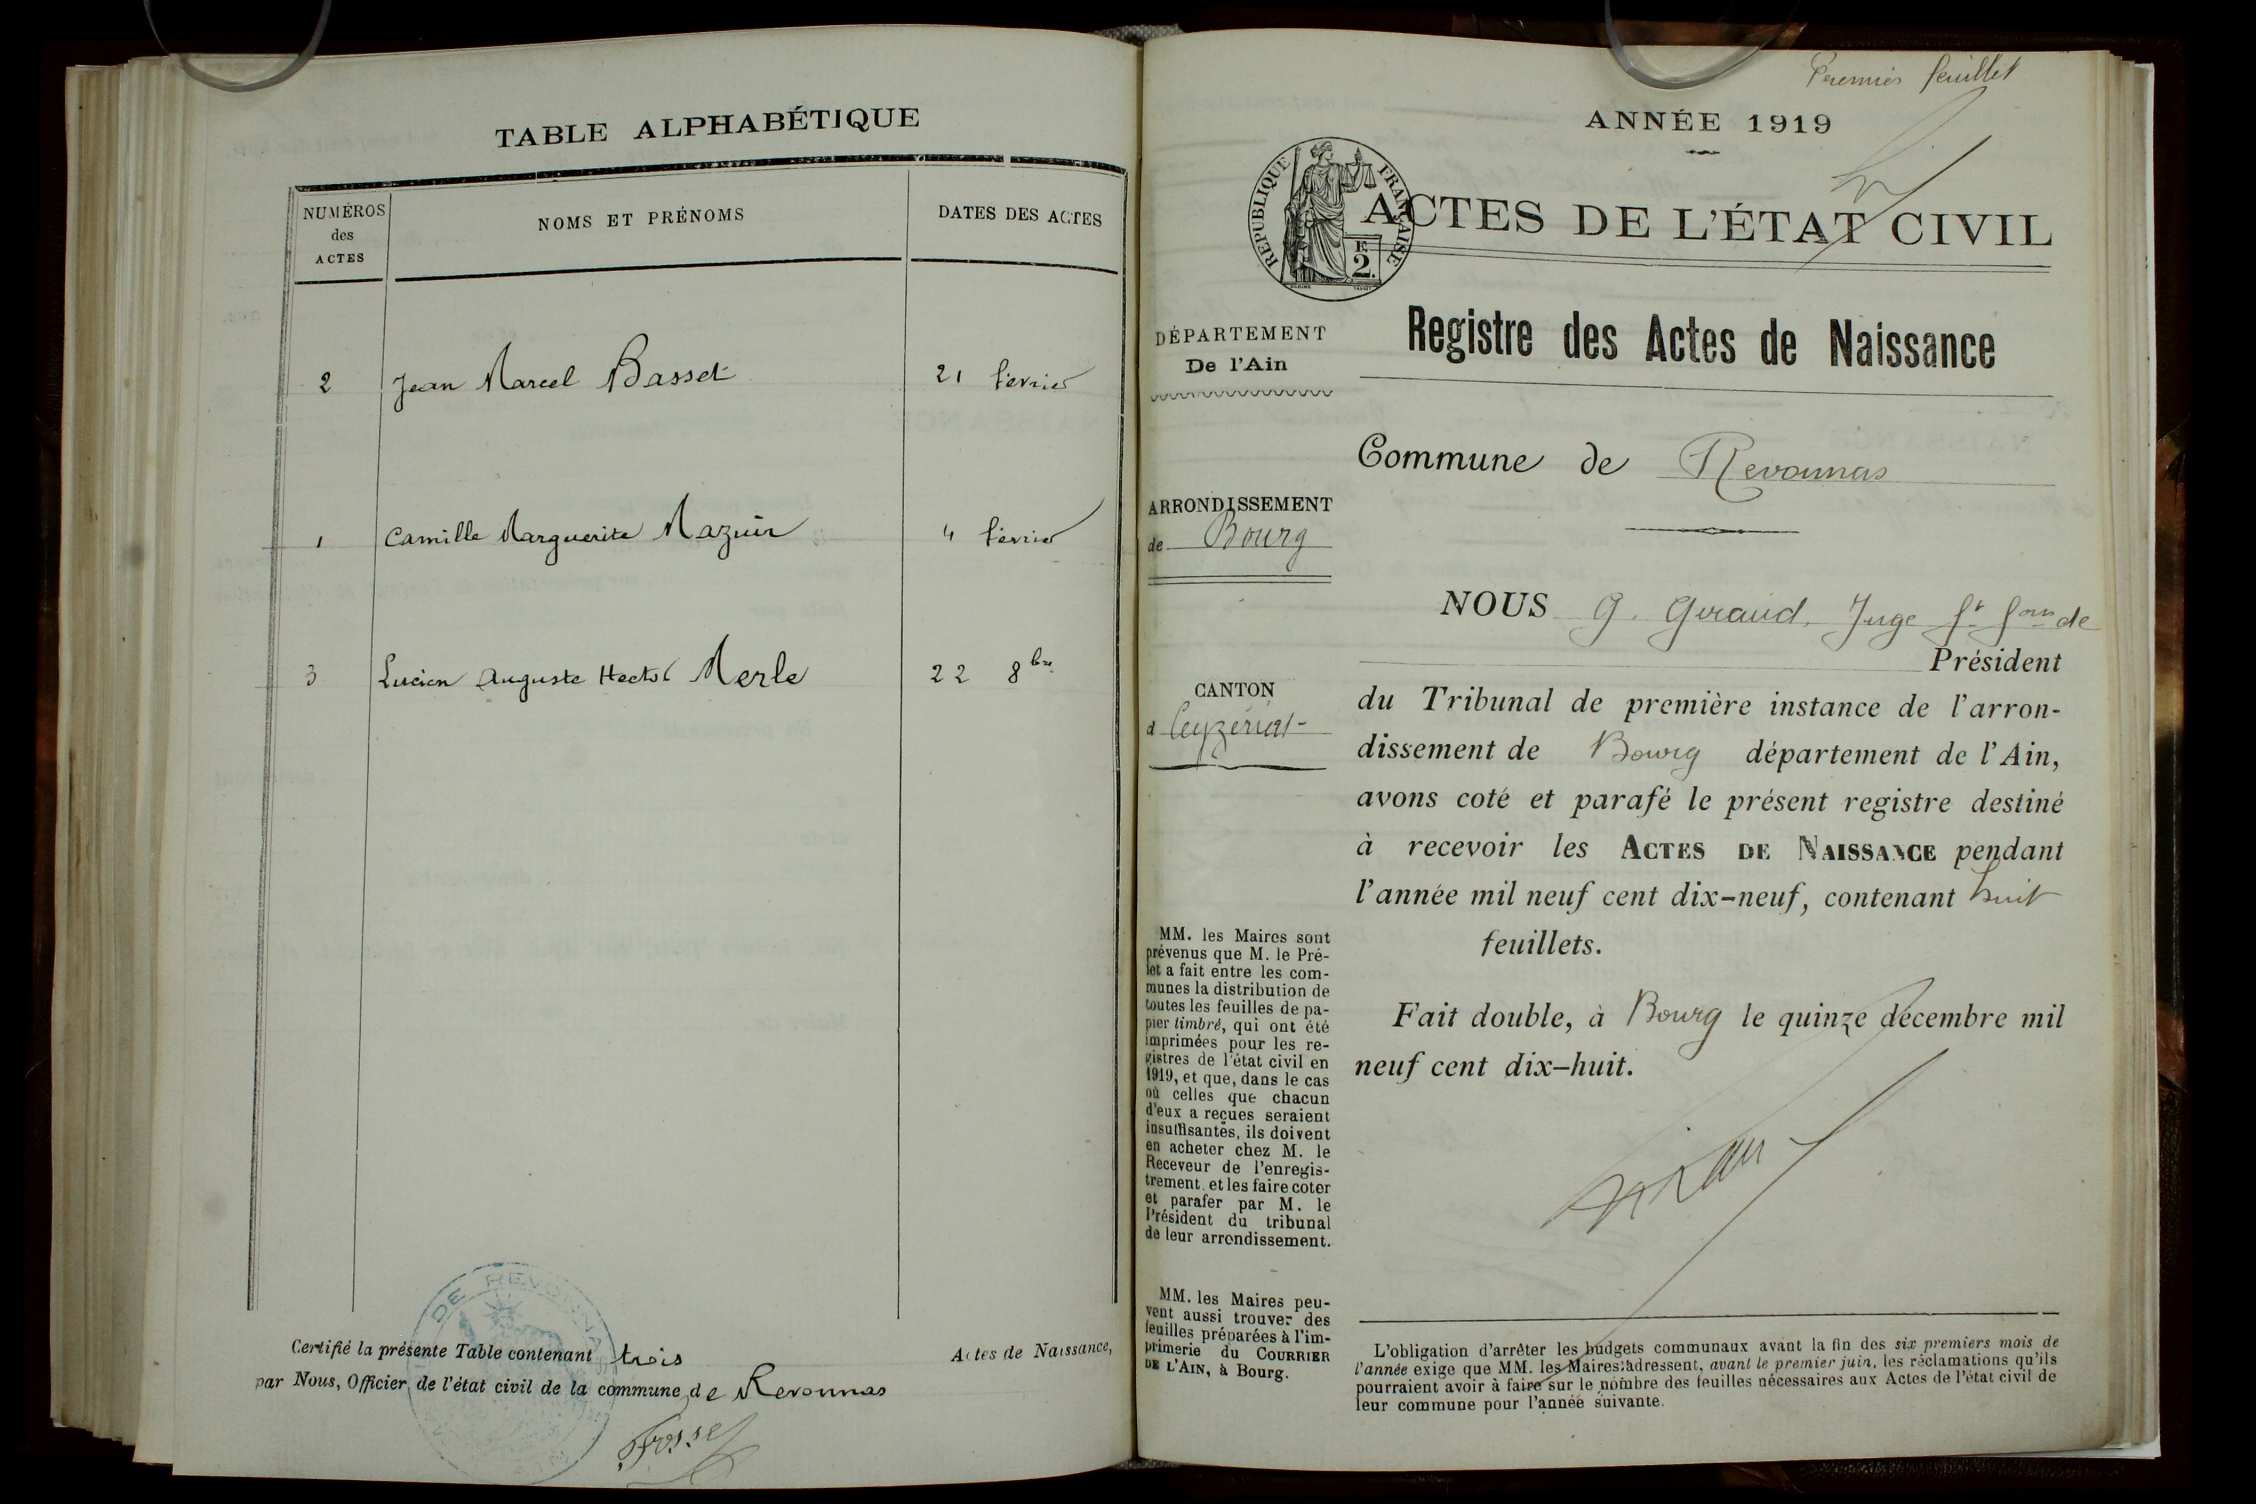 TABLE ALPHABÉTIQUE
NUMÉROS
des
ACTES
NOMS ET PRÉNOMS
DATES DES ACTES
2 Jean Marcel Basset 21 février
1 Camille Marguerite Mazuir 4 février
3 Lucien Auguste Hector Merle 22 8bre
DE REVONNAS
Certifié la présente Table contenant trois Actes de Naissance,
par Nous, Officier de l'état civil de la commune de Revonnas
Premier feuillet
ANNÉE 1919
RÉPUBLIQUE FRANÇAISE
F.
2.
ACTES DE L'ÉTAT CIVIL
DÉPARTEMENT
De l'Ain
Registre des Actes de Naissance
Commune de Revonnas
ARRONDISSEMENT
de Bourg
CANTON
d Ceyzériat
NOUS G. Giraud, Juge ft fons de
Président
du Tribunal de première instance de l'arron-
dissement de Bourg département de l'Ain,
avons coté et parafé le présent registre destiné
à recevoir les ACTES DE NAISSANCE pendant
l'année mil neuf cent dix-neuf, contenant huit
feuillets.
Fait double, à Bourg le quinze décembre mil
neuf cent dix-huit.
MM. les Maires sont
prévenus que M. le Pré-
fet a fait entre les com-
munes la distribution de
toutes les feuilles de pa-
pier timbré, qui ont été
imprimées pour les re-
gistres de l'état civil en
1919, et que, dans le cas
où celles que chacun
d'eux a reçues seraient
insuffisantes, ils doivent
en acheter chez M. le
Receveur de l'enregis-
trement et les faire coter
et parafer par M. le
Président du tribunal
de leur arrondissement.
MM. les Maires peu-
vent aussi trouver des
feuilles préparées à l'im-
primerie du COURRIER
DE L'AIN, à Bourg.
L'obligation d'arrêter les budgets communaux avant la fin des six premiers mois de
l'année exige que MM. les Maires adressent, avant le premier juin, les réclamations qu'ils
pourraient avoir à faire sur le nombre des feuilles nécessaires aux Actes de l'état civil de
leur commune pour l'année suivante.